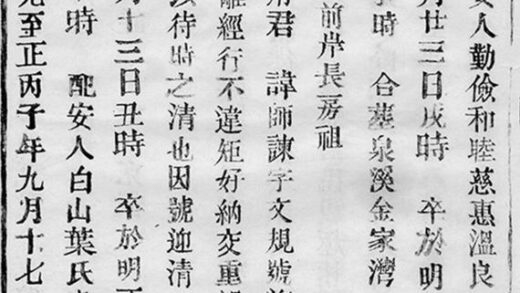 安人勤儉和睦慈惠溫良
月廿三日戌時 卒於明
時 合墓泉溪金家灣
前岸長房祖
君 諱師諫字文規號迎
離經行不違矩好納交重
待時之清也因號迎清
月十三日丑時 卒於明
時 配安人白山葉氏
元至正丙子年九月十七